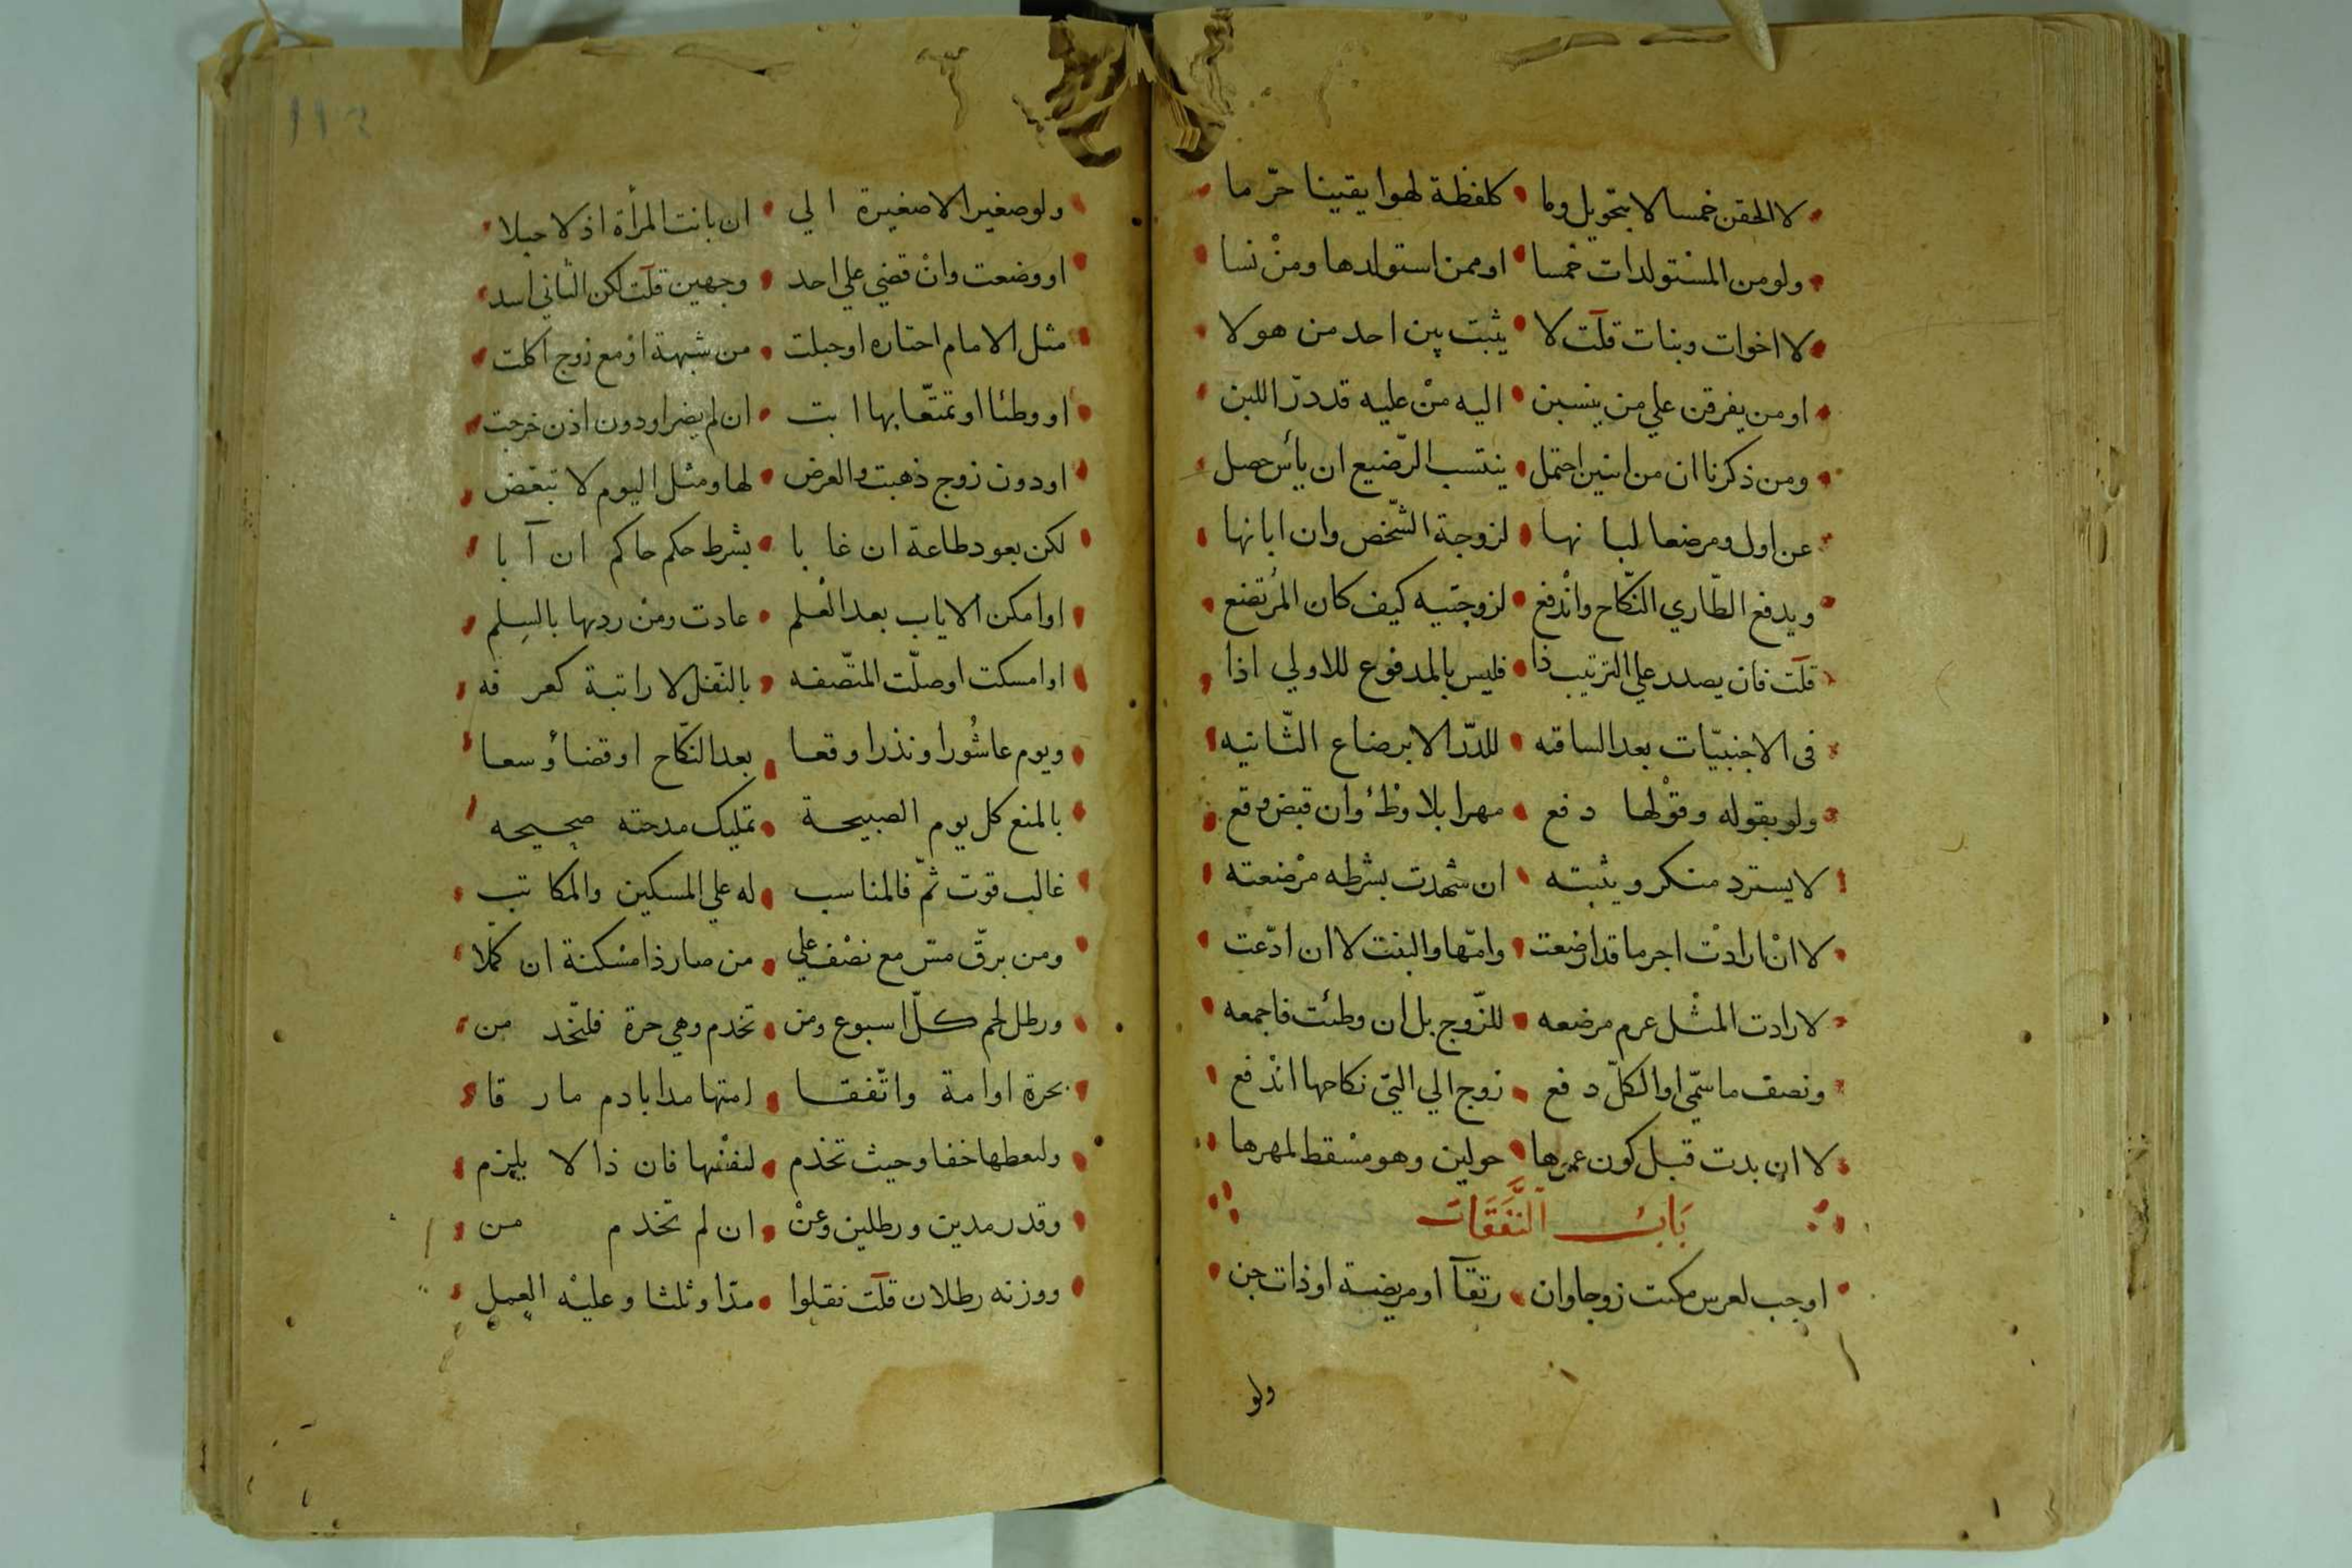 لا الحقن خمسا لا بتحويل ولما • كلفظة لهوا يقينا حرّ ما
ولو من المسْتولدات خمسا • او ممن استولدها ومنْ نسا
لا اخوات وبنات قلت لا • يثبت بين احد من هولا
او من يفرقن علي من ينسبن • اليه منْ عليه قد درّ اللبن
ومن ذكرنا ان من اثنين احتمل • ينتسب الرّضيع ان يأس حصل
عن اول ومرضعا لبا نها • لزوجة الشّخص وان ابانها
ويدفع الطّاري النّكاح وانْدفع • لزوجتيه كيف كان المُرتضع
قلت فان يصدر علي الترتيب ذا • فليس بالمدفوع للاولي اذا
في الاجنبيّات بعد الساقه • للدّر الا برضاع الثّانيه
ولو بقوله وقوْلها د فع • مهرا بلا وطْئ وان قبض وقع
لا يسترد منكر ويثبته • ان شهدت بشرطه مرْضعته
لا انْ ارادتْ اجر ما قد ارضعت • وامّها والبنت لا ان ادّعت
لا رادت المثْل غرم مرضعه • للزّوج بل ان وطئت فاجمعه
ونصف ما سمّي او الكلّ د فع • زوج الي التي نكاحها اندْ فع
لا ان بدت قبل كون عمرها • حولين وهو مسْقط لمهرها
بَابُ النَّفَقَات
اوجب لعرس مكنت زوجا وان • رتقآ او مريضة او ذات جن
ولو
١١٢
ولو صغير الا صغيرة ا لي • ان بانت المرأة اذ لا حبلا
او وضعت وانْ قضي علي احد • وجهين قلت لكن الثاني اسد
مثل الامام اختاره او حبلت • من شبهة او مع زوج اكلت
او وطئا او تمتّعا بها ا بت • ان لم يضر او دون اذن خرجت
او دون زوج ذهبت والعرض • لها ومثل اليوم لا تبعّض
لكن بعود طاعة ان غا با • بشرط حكم حاكم ان آ با
او امكن الاياب بعد الْعلم • عادت ومنْ ردها بالسِلم
او امسكت او صلّت المتّصفه • بالنّفل لا راتبة كعر فه
ويوم عاشُورا ونذرا وقعا • بعد النّكاح او قضاؤ سعا
بالمنع كل يوم الصبيحة • تمليك مدحته صحيحه
غالب قوت ثمّ فالمناسب • له علي المسكين والمكا تب
ومن برقّ مسّ مع نصْف علي • من صار ذا مسْكنة ان كمّلا
ورطل لحم كلّ اسبوع ومن • تخدم وهي حرة فليخد من
بحرة او امة واتّفقا • امتها مدا بادم ما ر قا
وليعطها خفا وحيث تخدم • لنفْسها فان ذا لا يلزم
وقدر مدين ورطلين وعنْ • ان لم تخد م من
ووزنه رطلان قلت نقلوا • مدّا وثلثا وعليْه العمل